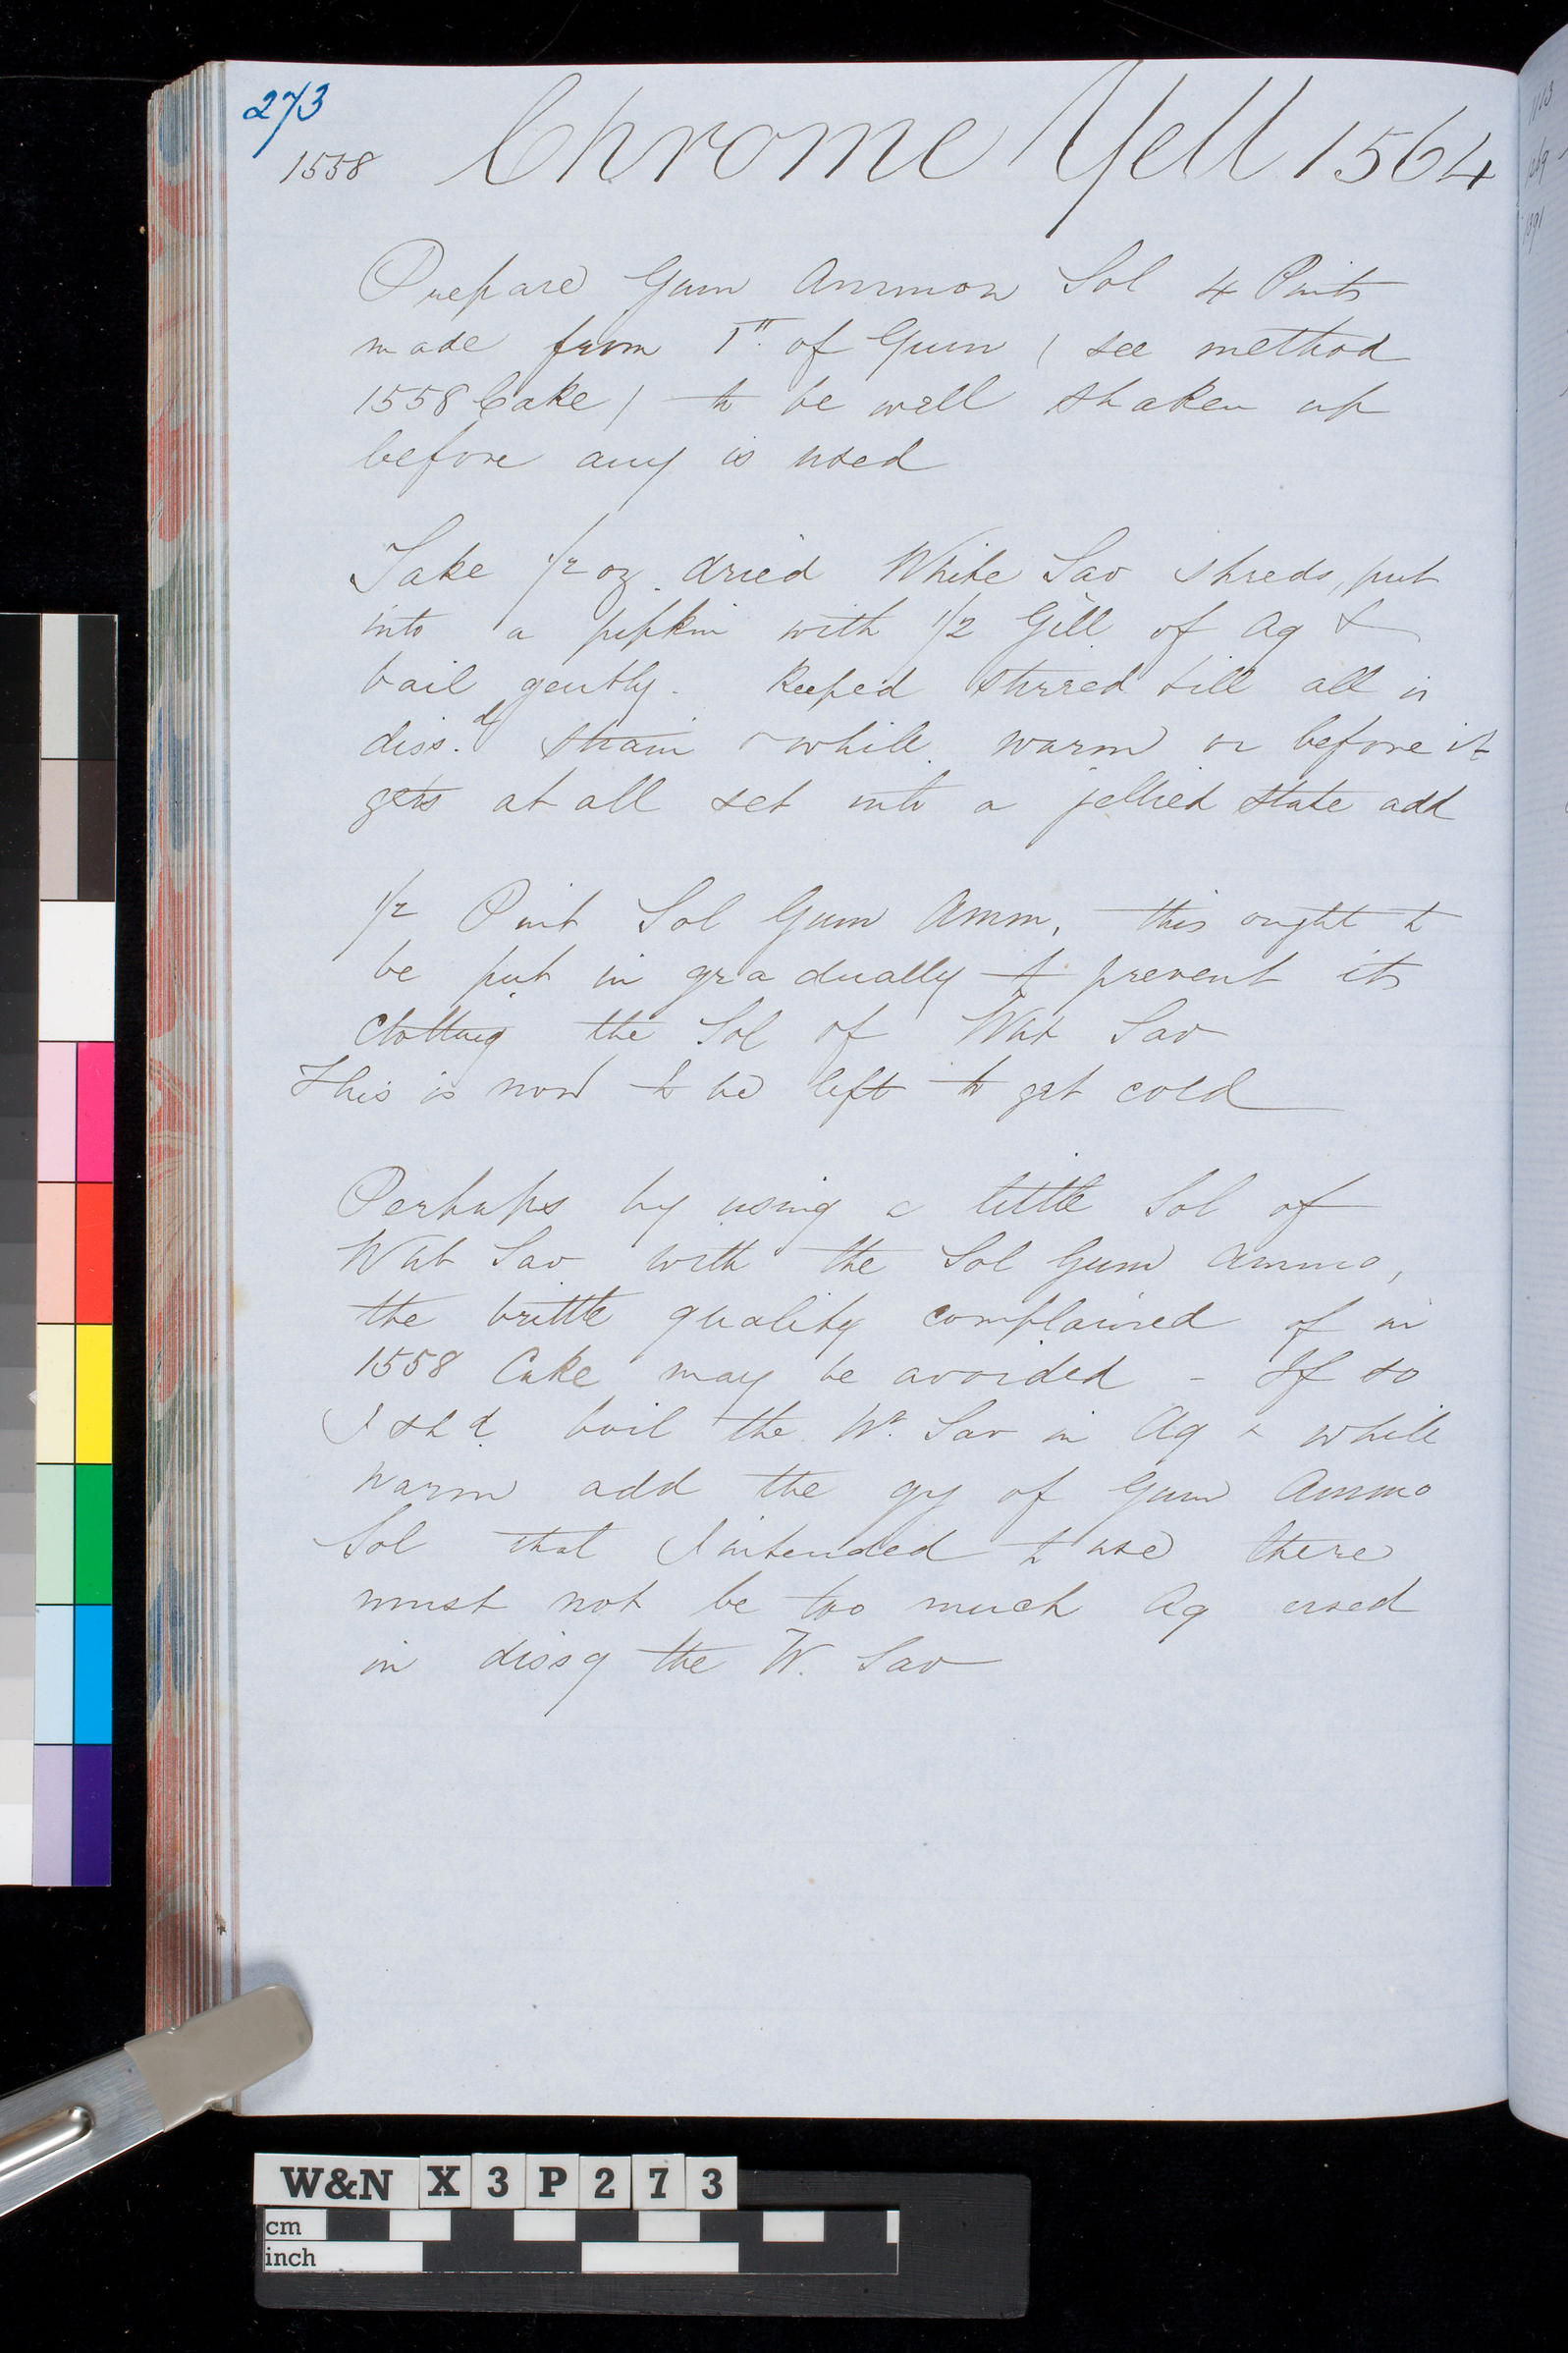 273
1558 Chrome Yell 1564
Prepare Gum Ammon Sol 4 Pints
made from 1" of Gum ( see method
1558 Cake ) to be well shaken up
before any is used
Take 1/2 oz. dried White Sav shreds, put
into a pipkin with 1/2 Gill of Aq &
boil gently. Keeped stirred till all is
diss.d strain & while warm or before it
gets at all set into a jellied state add
1/2 Pint Sol Gum Amm, this ought to
be put in gradually to prevent its
clotting the Sol of Wht Sav
This is now to be left to get cold
Perhaps by using a little Sol of
Wht Sav with the Sol Gum Ammo,
the brittle quality complained of in
1558 Cake may be avoided - If so
I shd boil the We Sav in Aq & while
warm add the qy of Gum Ammo
Sol that I intended to use there
must not be too much Aq used
in dissg the W. Sav
1113
W&N X 3 P 2 7 3
cm
inch